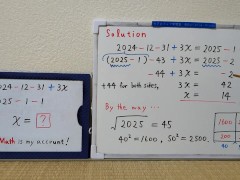 2024-12-31 + 3x
2025-1-1
x = ?
Math is my account!
Solution
2024-12-31 + 3x = 2025-1
(2025-1)-43 + 3x = 2025-2
-44 + 3x = -2
+44 for both sides, 3x = 42
x = 14
By the way ...
√2025 = 45
40² = 1600, 50² = 2500.